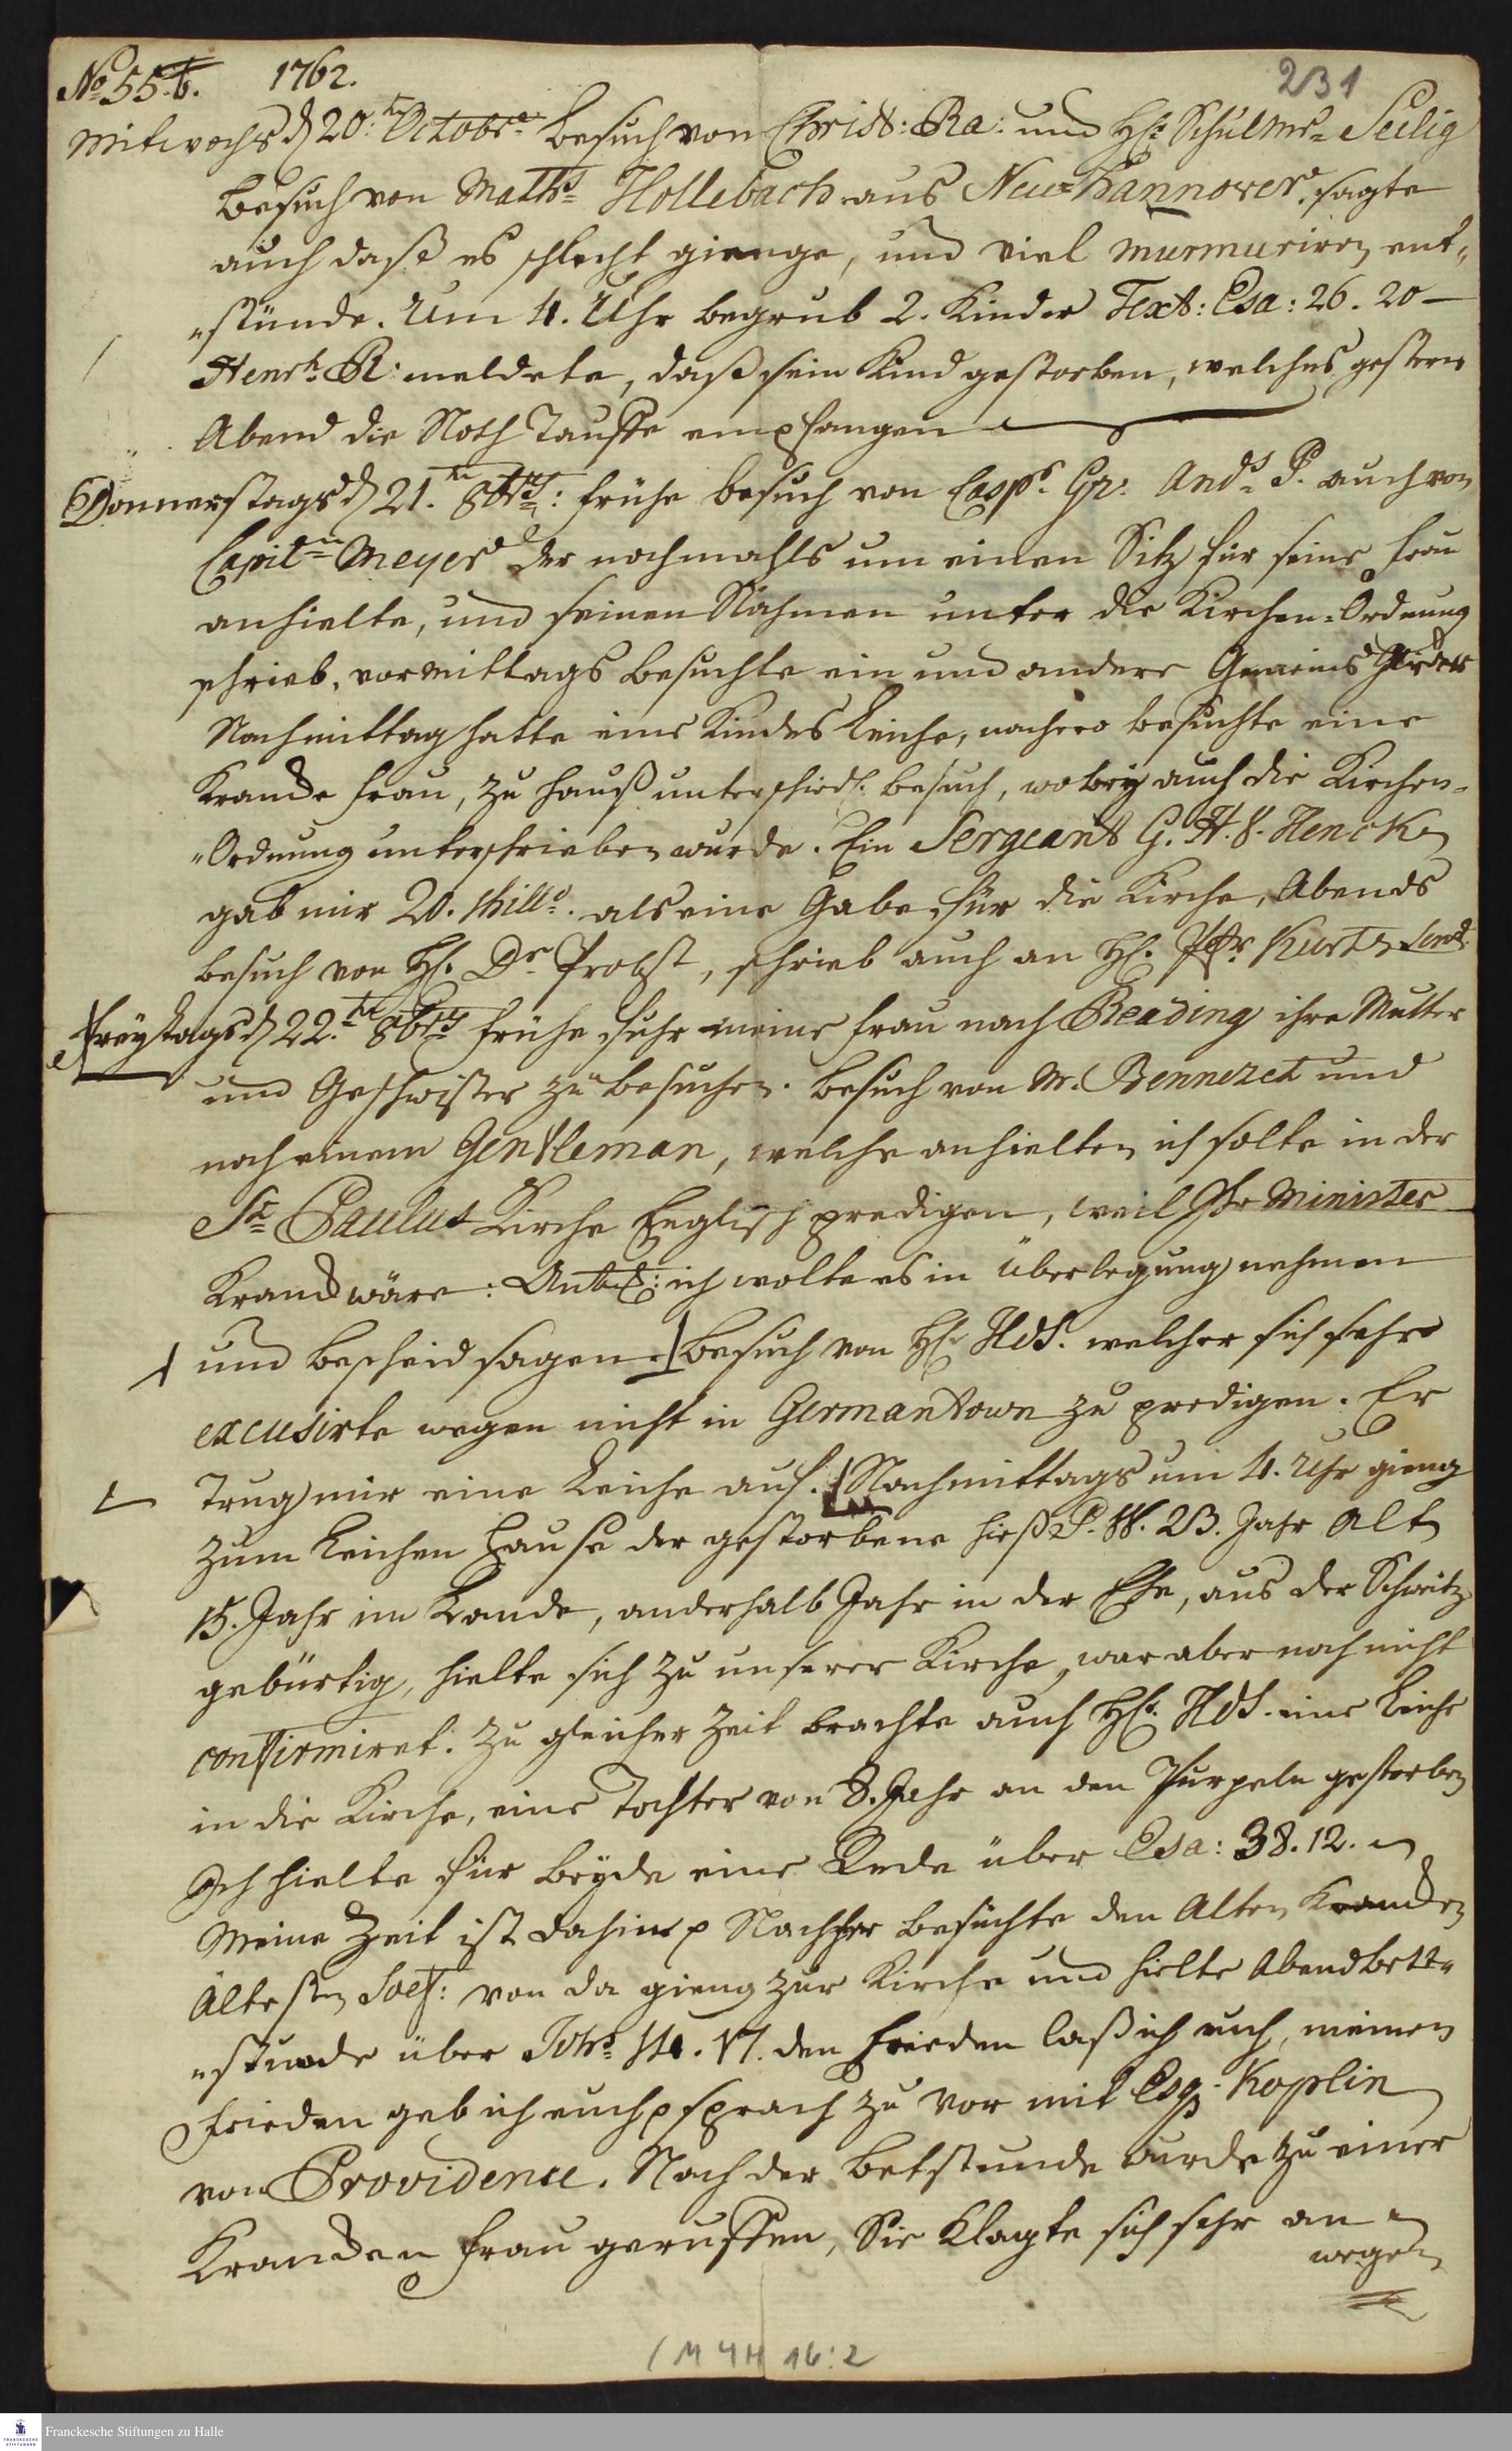 No 55.b. 1762. 231
Mitwochs d 20.tn Octobr. Besuch von Christ: Ra: und HE. Schulmr. Selig
Besuch von Matths Hollebach aus Neu-Hannover. sagte
auch daß es schlecht gienge, und viel murmuriren ent„
„stünde. Um 4. Uhr begrub 2. Kinder Text: Esa: 26. 20 —
Henrh. R: meldete, daß sein Kind gestorben, welches gestern
Abend die Noth Tauffe empfangen
Donnerstags d 21.tn 8br: frühe Besuch von Casps. Gr: Andrs. P. auch von
Capitn Meyer der nochmahls um einen Sitz für seine Frau
anhielte, und seinen Nahmen unter die Kirchen-Ordnung
schrieb. vormittags besuchte ein und andere Gemeins Glieder
Nachmittag hatte eine Kindes Leiche, nachero besuchte eine
Krancke Frau, zu Hauß unterschiedl. besuch, wobey auch die Kirchen-
„Ordnung unterschrieben wurde. Ein Sergeant G. H. V. Hencken
gab mir 20. shills. als eine Gabe für die Kirche, Abends
besuch von HE. Dr Probst, schrieb auch an HE. Pfr. Kurtz send.
Freytags d 22.tn 8br frühe fuhr meine Frau nach Reading ihre Mutter
und Geschwister zu besuchen. Besuch von Mr. Bennezet und
noch einem Gentleman, welche anhielten ich solte in der
St Paulus Kirche Englisch predigen, weil Ihr Minister
Kranck wäre: Antw: ich wolte es in Überlegung nehmen
und Bescheid sagen. Besuch von HE. Hds. welcher sich sehr
excusirte wegen nicht in Germantown zu predigen. Er
Trug mir eine Leiche auf. Nachmittags um 4. Uhr gieng
zum Leichen Hause der gestorbene hieß P. W. 23. Jahr Alt
15. Jahr im Lande, anderhalb Jahr in der Ehe, aus der Schweitz
gebürtig, hielte sich zu unserer Kirche, war aber noch nicht
confirmiret. Zu gleicher Zeit brachte auch HE. Hds. eine Leiche
in die Kirche, eine Tochter von 8. Jahr an den Purpeln gestorben
Ich hielte für Beyde eine Rede über Esa: 38. 12.
Meine Zeit ist dahin p Nachher besuchte den Alten Krancken
Ältesten Soef: von da gieng zur Kirche und hielte Abendbett„
„stunde über Joh: 14. V. den Frieden laß ich euch, meinen
Frieden geb ich euch p sprach zu vor mit Esq. Koplin
von Providence. Nach der Betstunde wurde zu einer
Krancken Frau geruffen, Sie Klagte sich sehr an
wegen
/ M 4H 16:2
Franckesche Stiftungen zu Halle